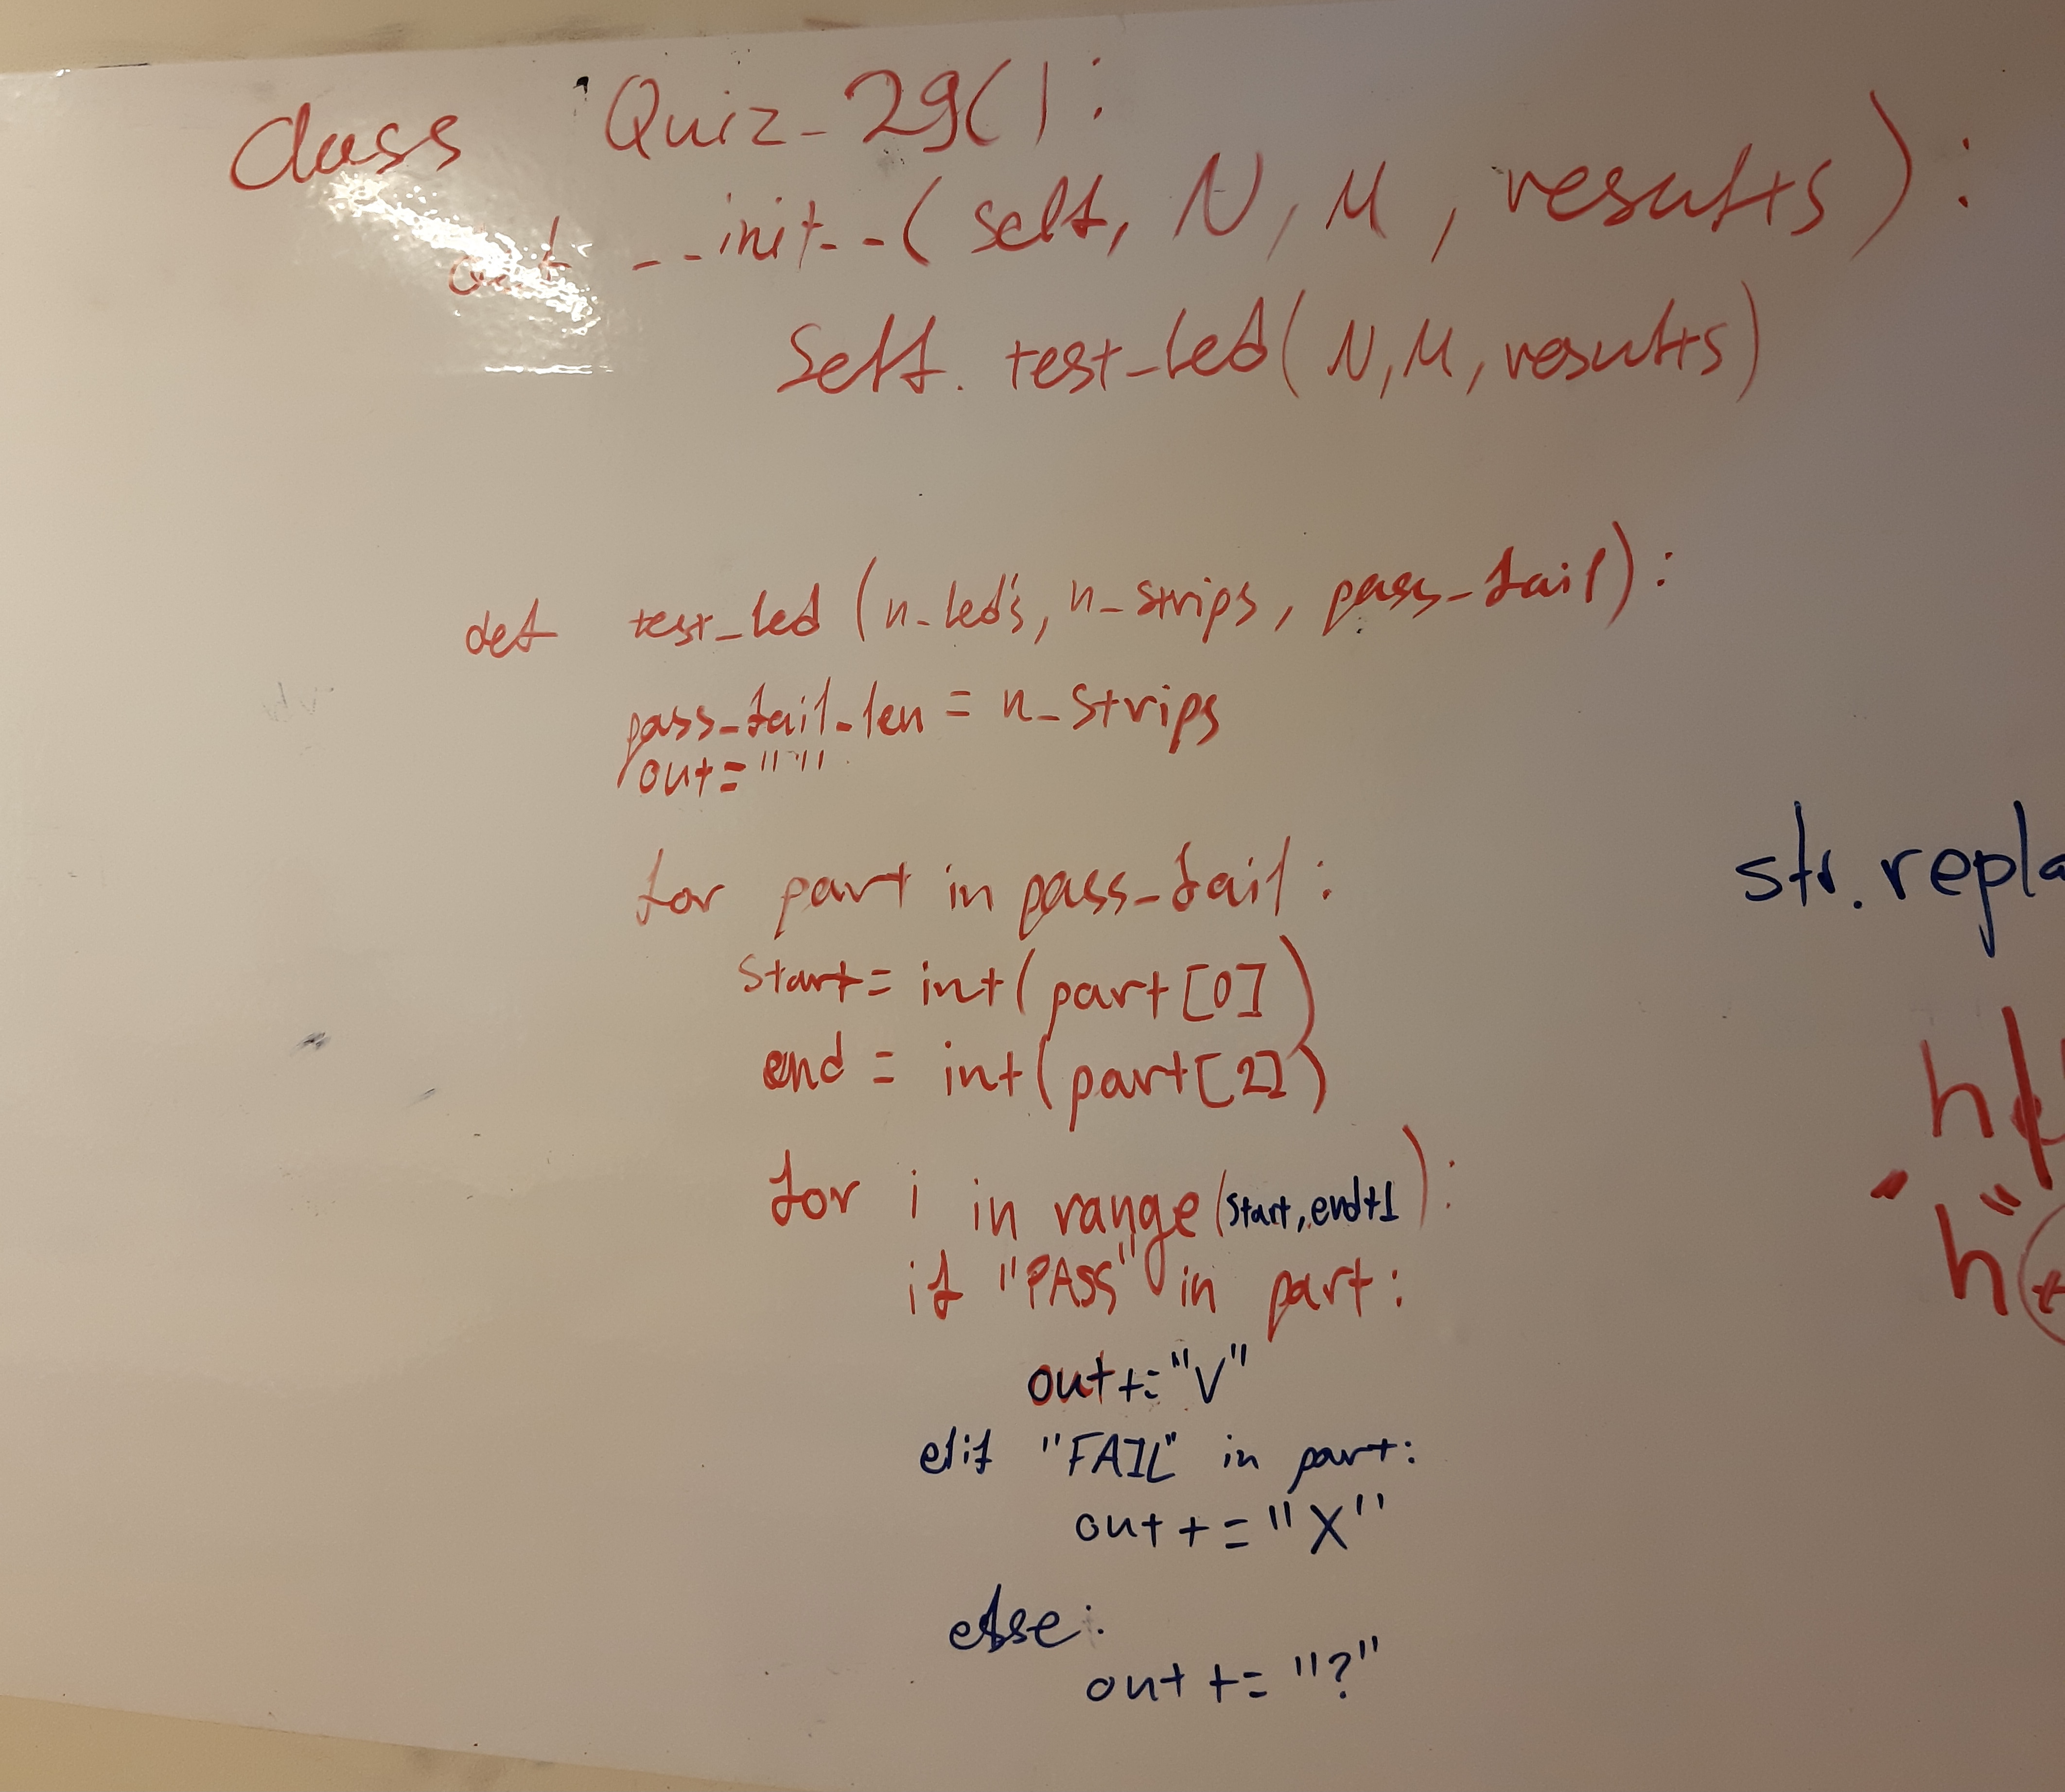 class Quiz_29():
def __init__(self, N, M, results):
self.test_led(N,M,results)
def test_led (n_leds, n_strips, pass_fail):
pass_fail_len = n_strips
out=""
for part in pass_fail:
start= int(part[0])
end = int(part[2])
for i in range(start,end+1):
if "PASS" in part:
out+="V"
elif "FAIL" in part:
out+="X"
else:
out+="?"
str.repla